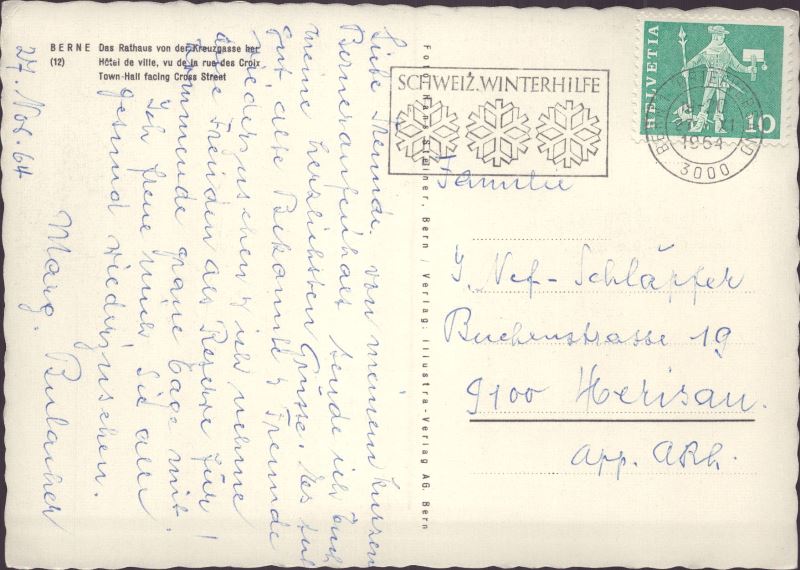 BERNE Das Rathaus von der Kreuzgasse her
(12) Hôtel de ville, vu de la rue des Croix
Town-Hall facing Cross Street
27. Nov. 64
Liebe Freunde. Von meinem kurzen
Berneraufenhalt sende ich Euch
meine herzlichsten Grüsse. Es tut
gut, alte Bekannte & Freunde
wiederzusehen & ich nehme
diese Freuden als Reserve für
kommende graue Tage mit!
Ich freue mich Sie alle
gesund wiederzusehen.
Marg.
Foto: Hans Steiner, Bern / Verlag: Illustra-Verlag AG. Bern
SCHWEIZ. WINTERHILFE
HELVETIA
10
1964
3000
Familie
J. Nef-Schläpfer
Buchenstrasse 19
9100 Herisau.
App. ARh.